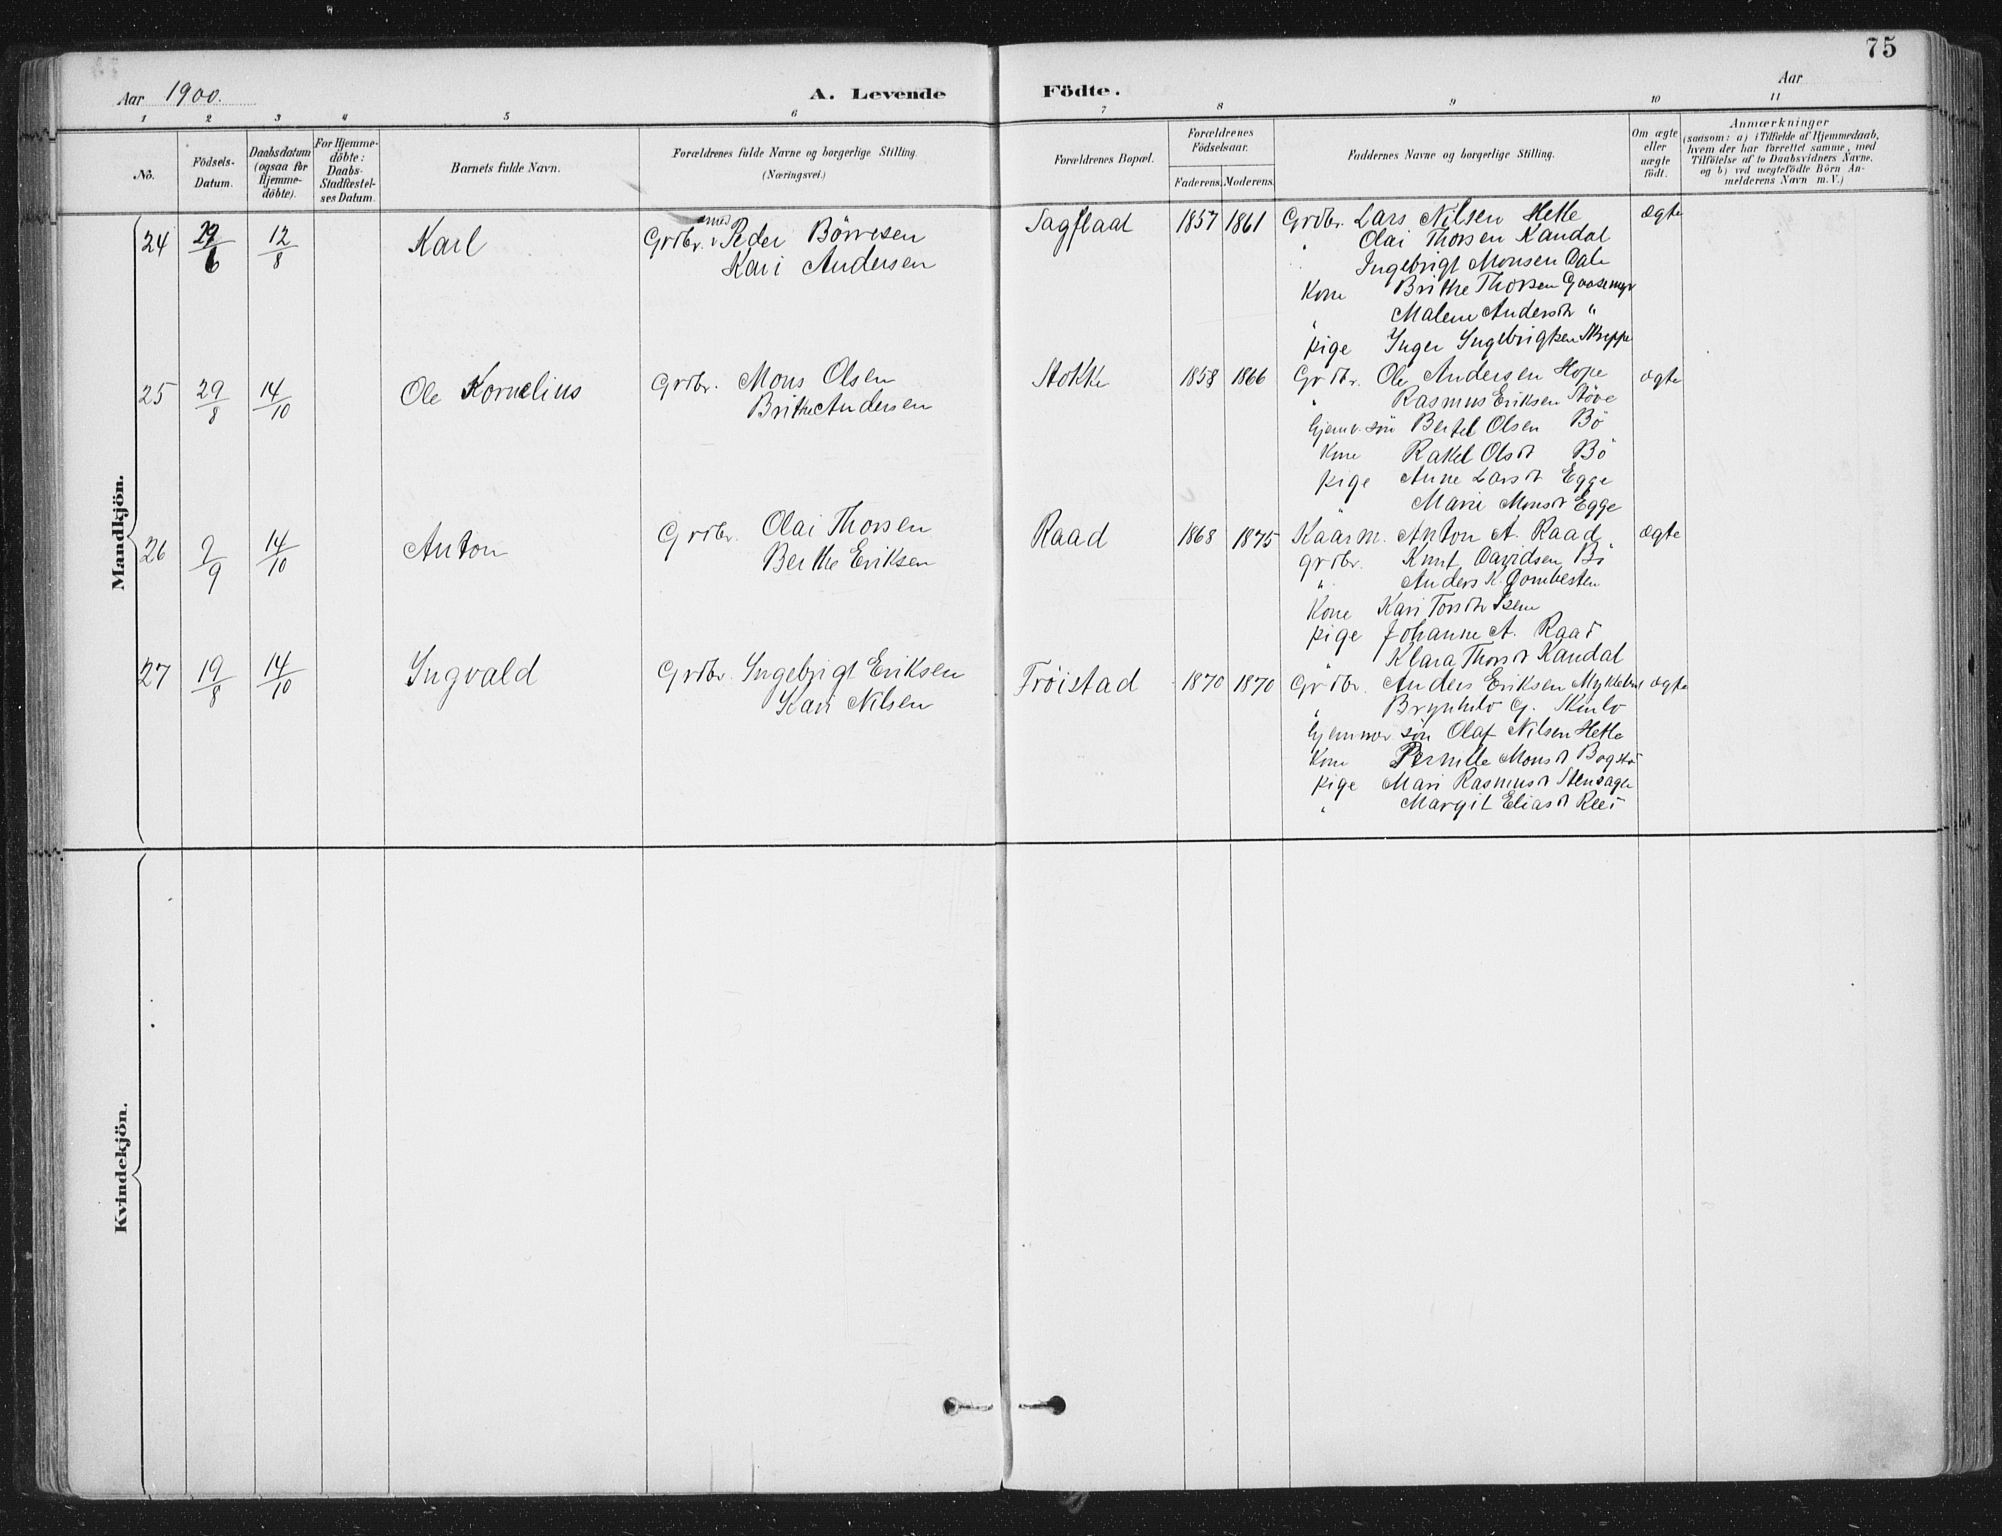 75
Aar 1900.
A. Levende Födte.
Aar
1 2 3 4 5 6 7 8 9 10 11
No.
Födsels-
Datum.
Daabsdatum
(ogsaa for
Hjemme-
döbte).
For Hjemme-
döbte:
Daabs-
Stadfæstel-
ses Datum.
Barnets fulde Navn.
Forældrenes fulde Navne og borgerlige Stilling.
(Næringsvei.)
Forældrenes Bopæl.
Forældrenes
Födselsaar.
Faderens. Moderens.
Faddernes Navne og borgerlige Stilling.
Om ægte
eller
uægte
födt.
Anmærkninger
(saasom: a) i Tilfælde af Hjemmedaab,
hvem der har forrettet samme, med
Tilföielse af to Daabsvidners Navne,
og b) ved uægtefödte Börn An-
melderens Navn m. V.)
Mandkjön.
24 6 12/8 Karl
Grdbr. Peder Börresen
Kari Andersen
Sagflaat 1857 1861
Grdbr. Lars Nilsen Hetle
" Olai Thorsen Kandal
Ingebrigt Monsen Dale
Kone Brithe Thorsen Gaasemyr
" Malene Andersdt "
pige Inger Ingebrigtsen Skreppe
ægte
25 29/8 14/10 Ole Kornelius
Grdbr. Mons Olsen
Brithe Andersen
Stokke 1858 1866
Grdbr. Ole Andersen Hope
" Rasmus Eriksen Støve
hjemv. søn Bertel Olsen Bö
Kone Rakel Olsdt Bö
pige Anne Larsdt Egge
Marie Monsdt Egge
ægte
26 9/9 14/10 Anton
Grdbr. Olai Thorsen
Berthe Eriksen
Raad 1868 1875
Kaarm. Anton A. Raad
grdbr. Knut Davidsen Bö
" Anders K.
Kone Kari Torsdtr
pige Johanne A. Raad
" Klara Thorsdt Kandal
ægte
27 19/8 14/10 Ingvald
Grdbr. Ingebrigt Eriksen
Kari Nilsen
Fröistad 1870 1870
Grdbr. Anders Eriksen Myklebust
" G.
hjemmev søn Olaf Nilsen Hetle
Kone Pernille Monsdt
pige Mari Rasmusdt
" Margit Eliasdt Reed
ægte
Kvindekjön.